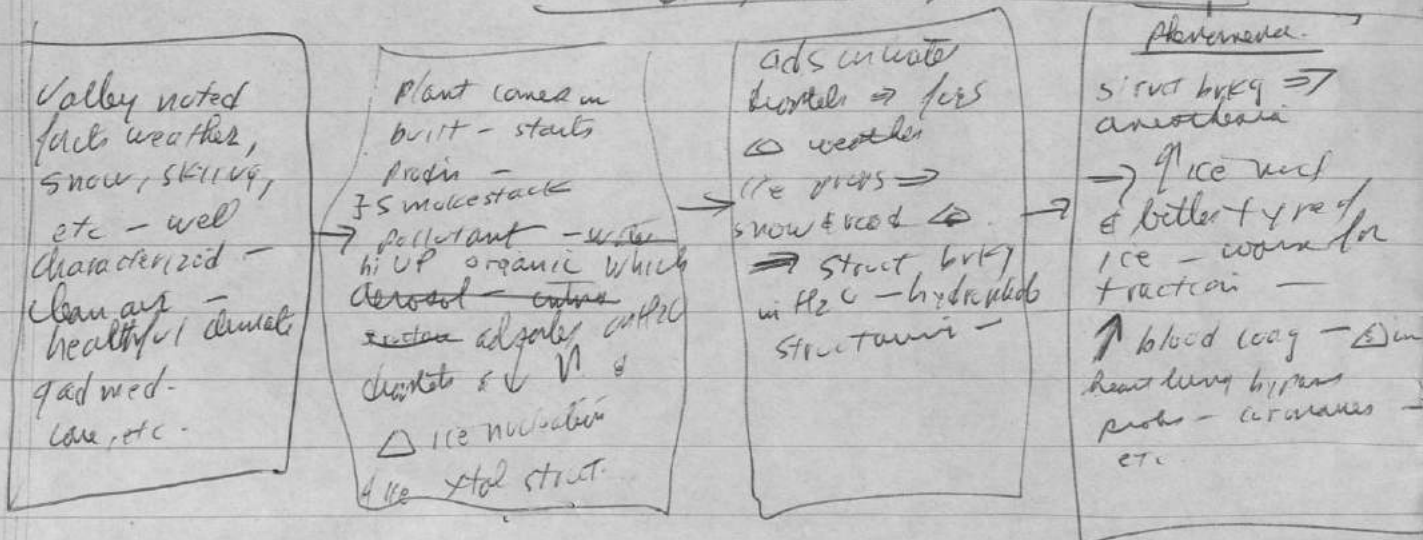 Valley noted
for its weather,
snow, skiing,
etc - well
characterized -
clean air -
healthful climate
gad med-
care, etc.
Plant comes in
built - starts
prodn -
smokestack
pollutant - water
hi VP organic which
aerosol -
adsorbs on H2O
droplets & ↓ VP &
△ ice nucleation
& ice xtal struct.
ads on water
droplets ⇒ fogs
△ weather
ice props ⇒
snow & road △
⇒ struct brkg
in H2O - hydrophob
structuring -
Phenomena.
struct brkg ⇒
anesthesia
⇒ ↑ ice nucl
& different type of
ice - worse for
traction -
↑ blood coag - △s in
heart lung bypass
probs - coronaries -
etc